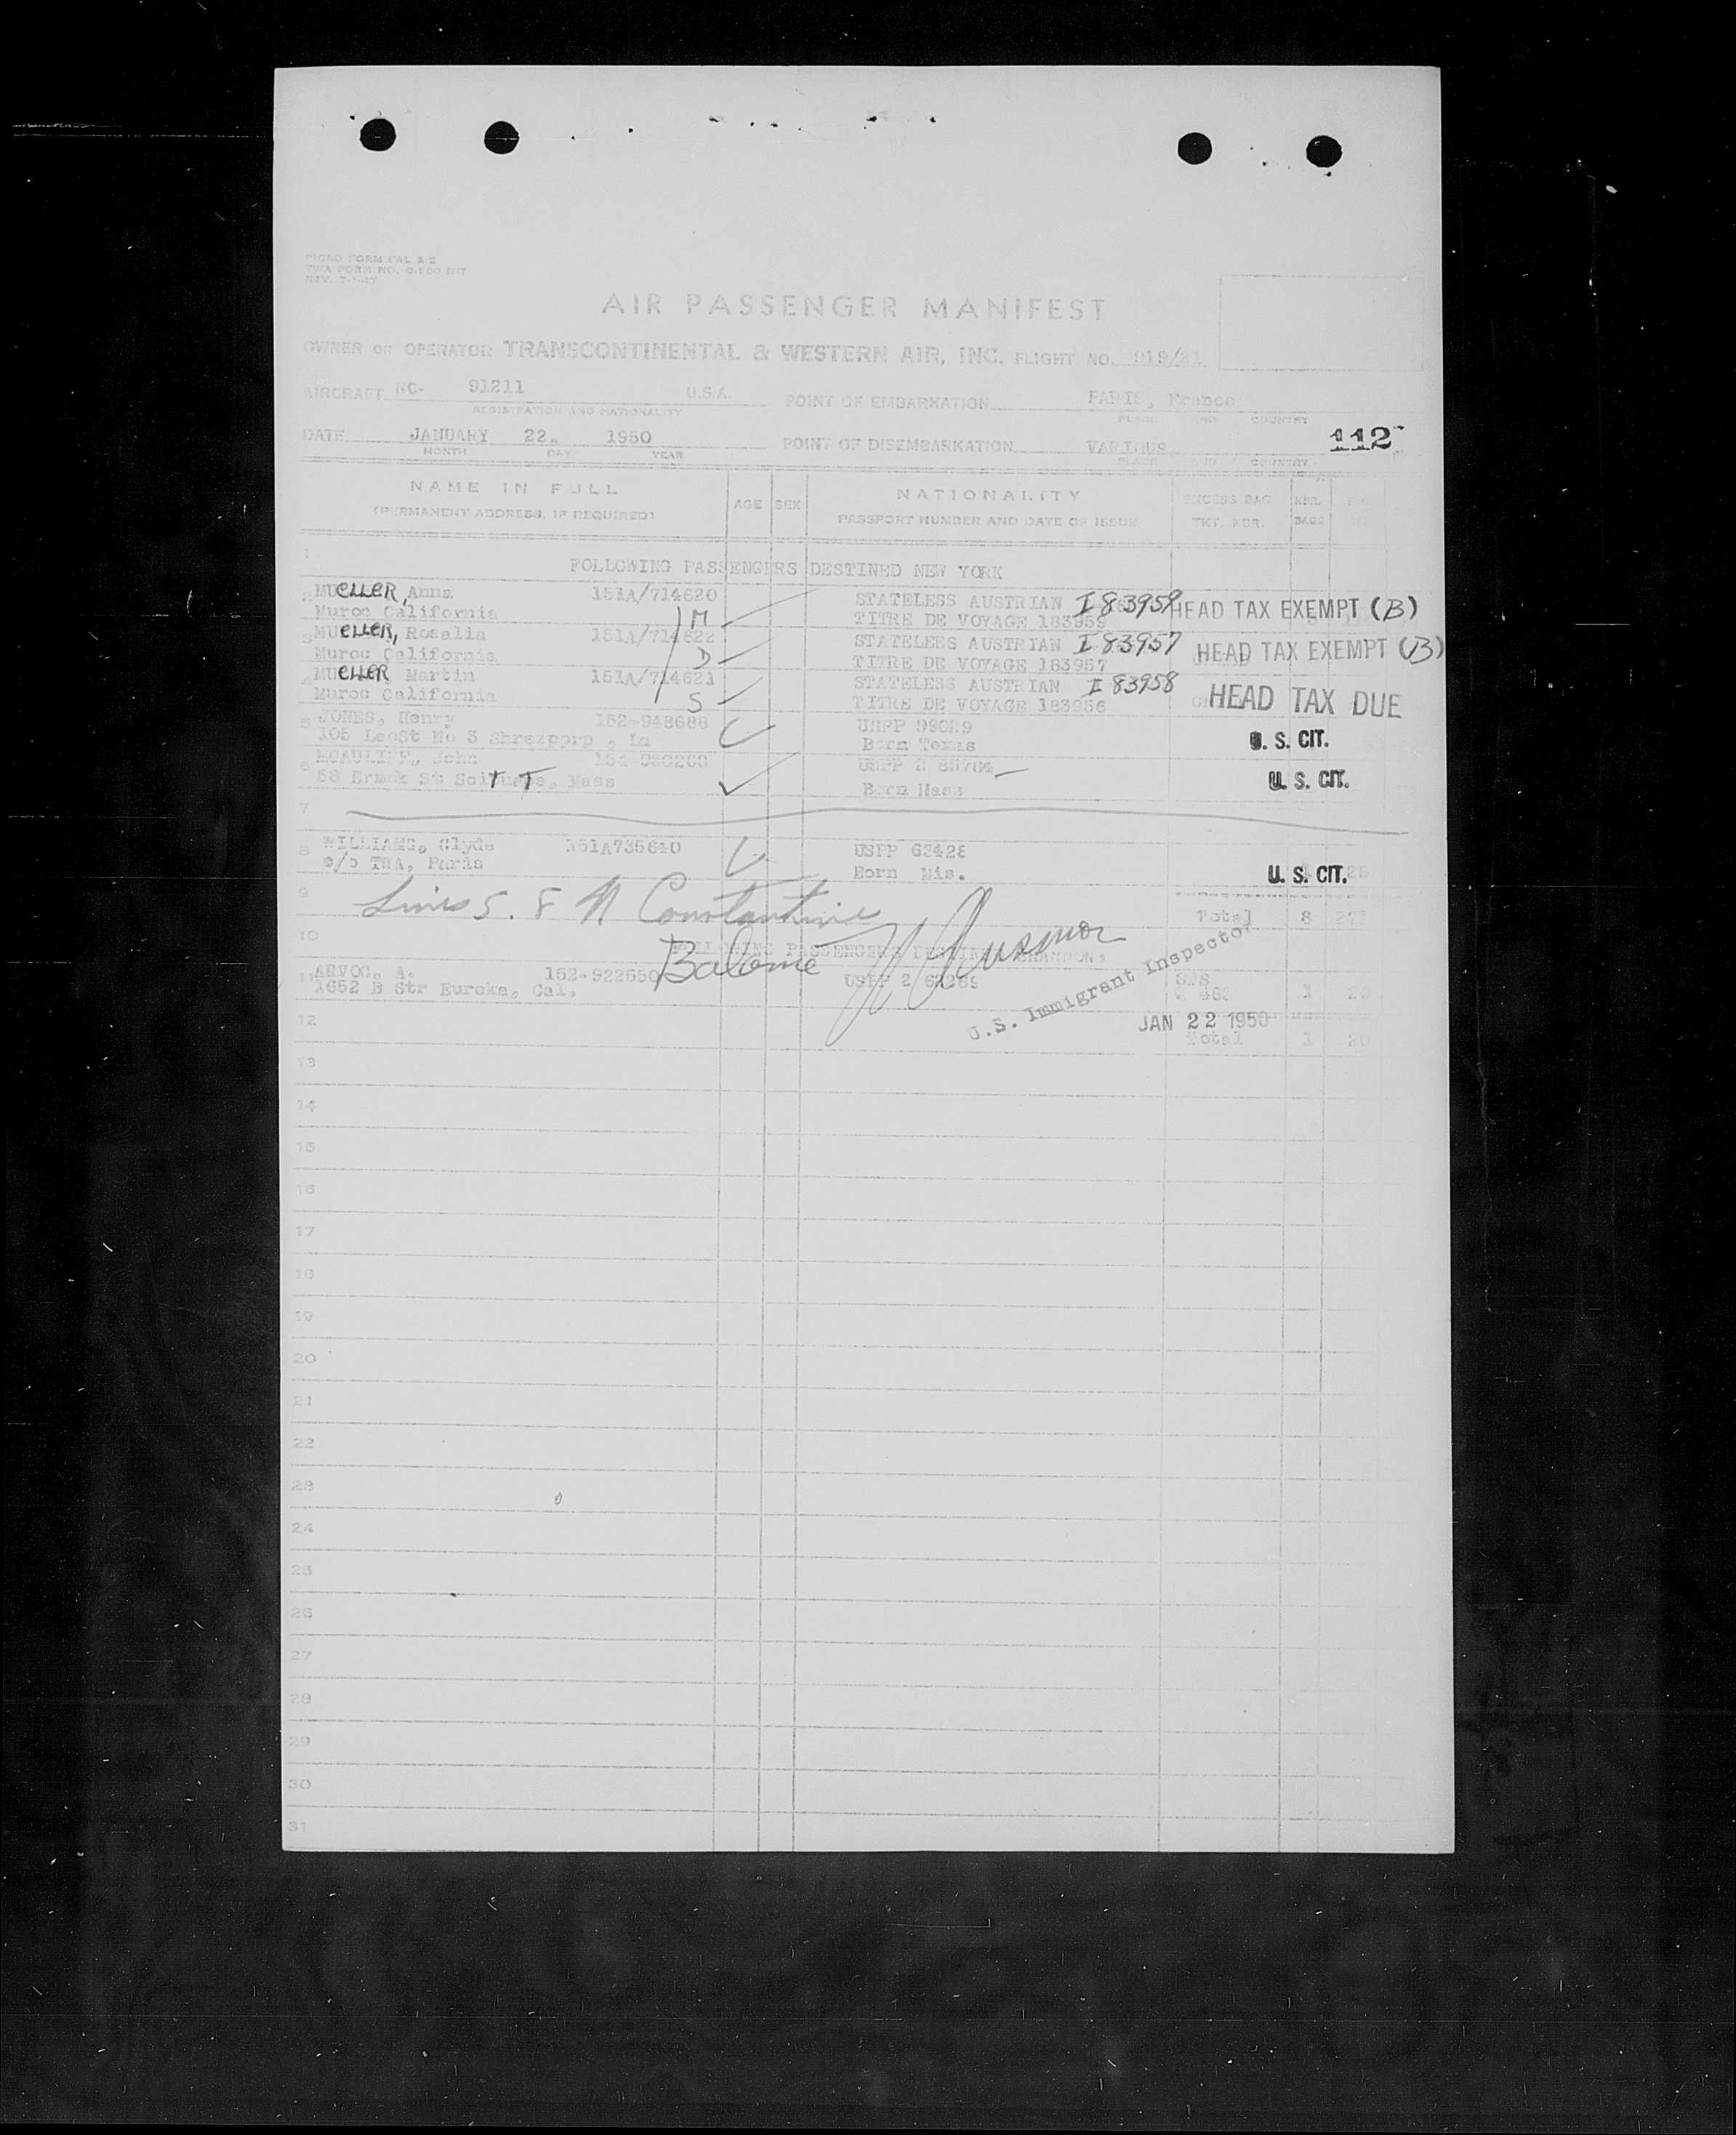 TWA FORM NO.
REV. 7-1-47
AIR PASSENGER MANIFEST
OWNER OR OPERATOR TRANSCONTINENTAL & WESTERN AIR, INC. FLIGHT NO. 919/21
AIRCRAFT NC- 91211 U.S.A. POINT OF EMBARKATION PARIS, France
REGISTRATION AND NATIONALITY PLACE AND COUNTRY
DATE JANUARY 22, 1950 POINT OF DISEMBARKATION VARIOUS 112
MONTH DAY YEAR PLACE AND COUNTRY
NAME IN FULL AGE SEX NATIONALITY EXCESS BAG NBR.
(PERMANENT ADDRESS, IF REQUIRED) PASSPORT NUMBER AND DATE OF ISSUE TKT. NBR. BAGS
1 FOLLOWING PASSENGERS DESTINED NEW YORK
2 MUELLER, Anna 151A/714620 STATELESS AUSTRIAN I 83959 HEAD TAX EXEMPT (B)
Muroc California M TITRE DE VOYAGE 183959
3 MUELLER, Rosalia 151A/714622 STATELESS AUSTRIAN I 83957 HEAD TAX EXEMPT (B)
Muroc California D TITRE DE VOYAGE 183957
4 MUELLER Martin 151A/714621 STATELESS AUSTRIAN I 83958 HEAD TAX DUE
Muroc California S TITRE DE VOYAGE
5 JONES, Henry 152-948688 USPP
105 LeoSt No 3 , La Born Texas U. S. CIT.
6 John USPP
68 St Mass Born Mass U. S. CIT.
7
8 WILLIAMS, Clyde USPP
c/o TWA, Paris Born Mis. U. S. CIT.
9 Lines 5. & 11 Constantine Total 8
10 FOLLOWING PASSENGERS SHANNON
Balome
U.S. Immigrant Inspector
11 ARVOC, A. 152-922550 USPP 2
1652 B Str Eureka, Cal. 1 20
12 JAN 22 1950
Total 1 20
13
14
15
16
17
18
19
20
21
22
23
24
25
26
27
28
29
30
31